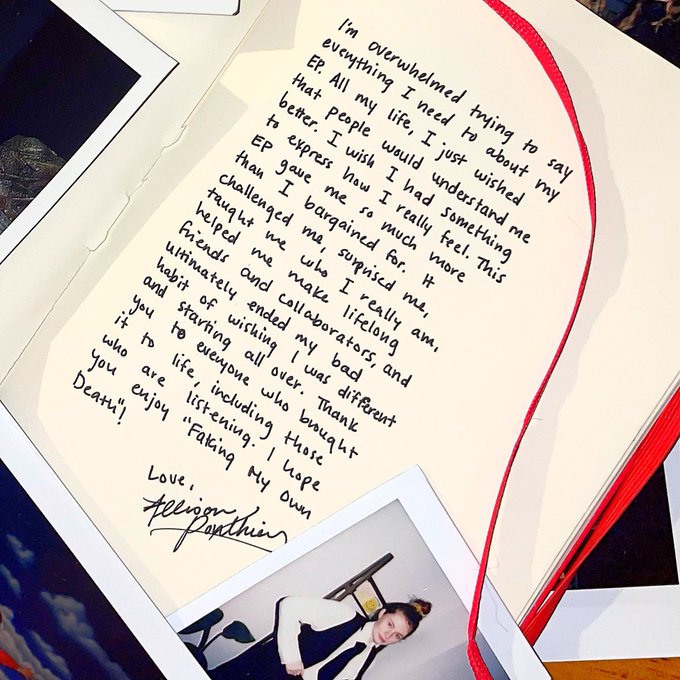 I'm overwhelmed trying to say
everything I need to about my
EP. All my life, I just wished
that people would understand me
better. I wish I had something
to express how I really feel. This
EP gave me so much more
than I bargained for. It
challenged me, surprised me,
taught me who I really am,
helped me make lifelong
friends and collaborators, and
ultimately ended my bad
habit of wishing I was different
and starting all over. Thank
you to everyone who brought
it to life, including those
who are listening. I hope
you enjoy "Faking My Own
Death"!
Love,
Allison Ponthier